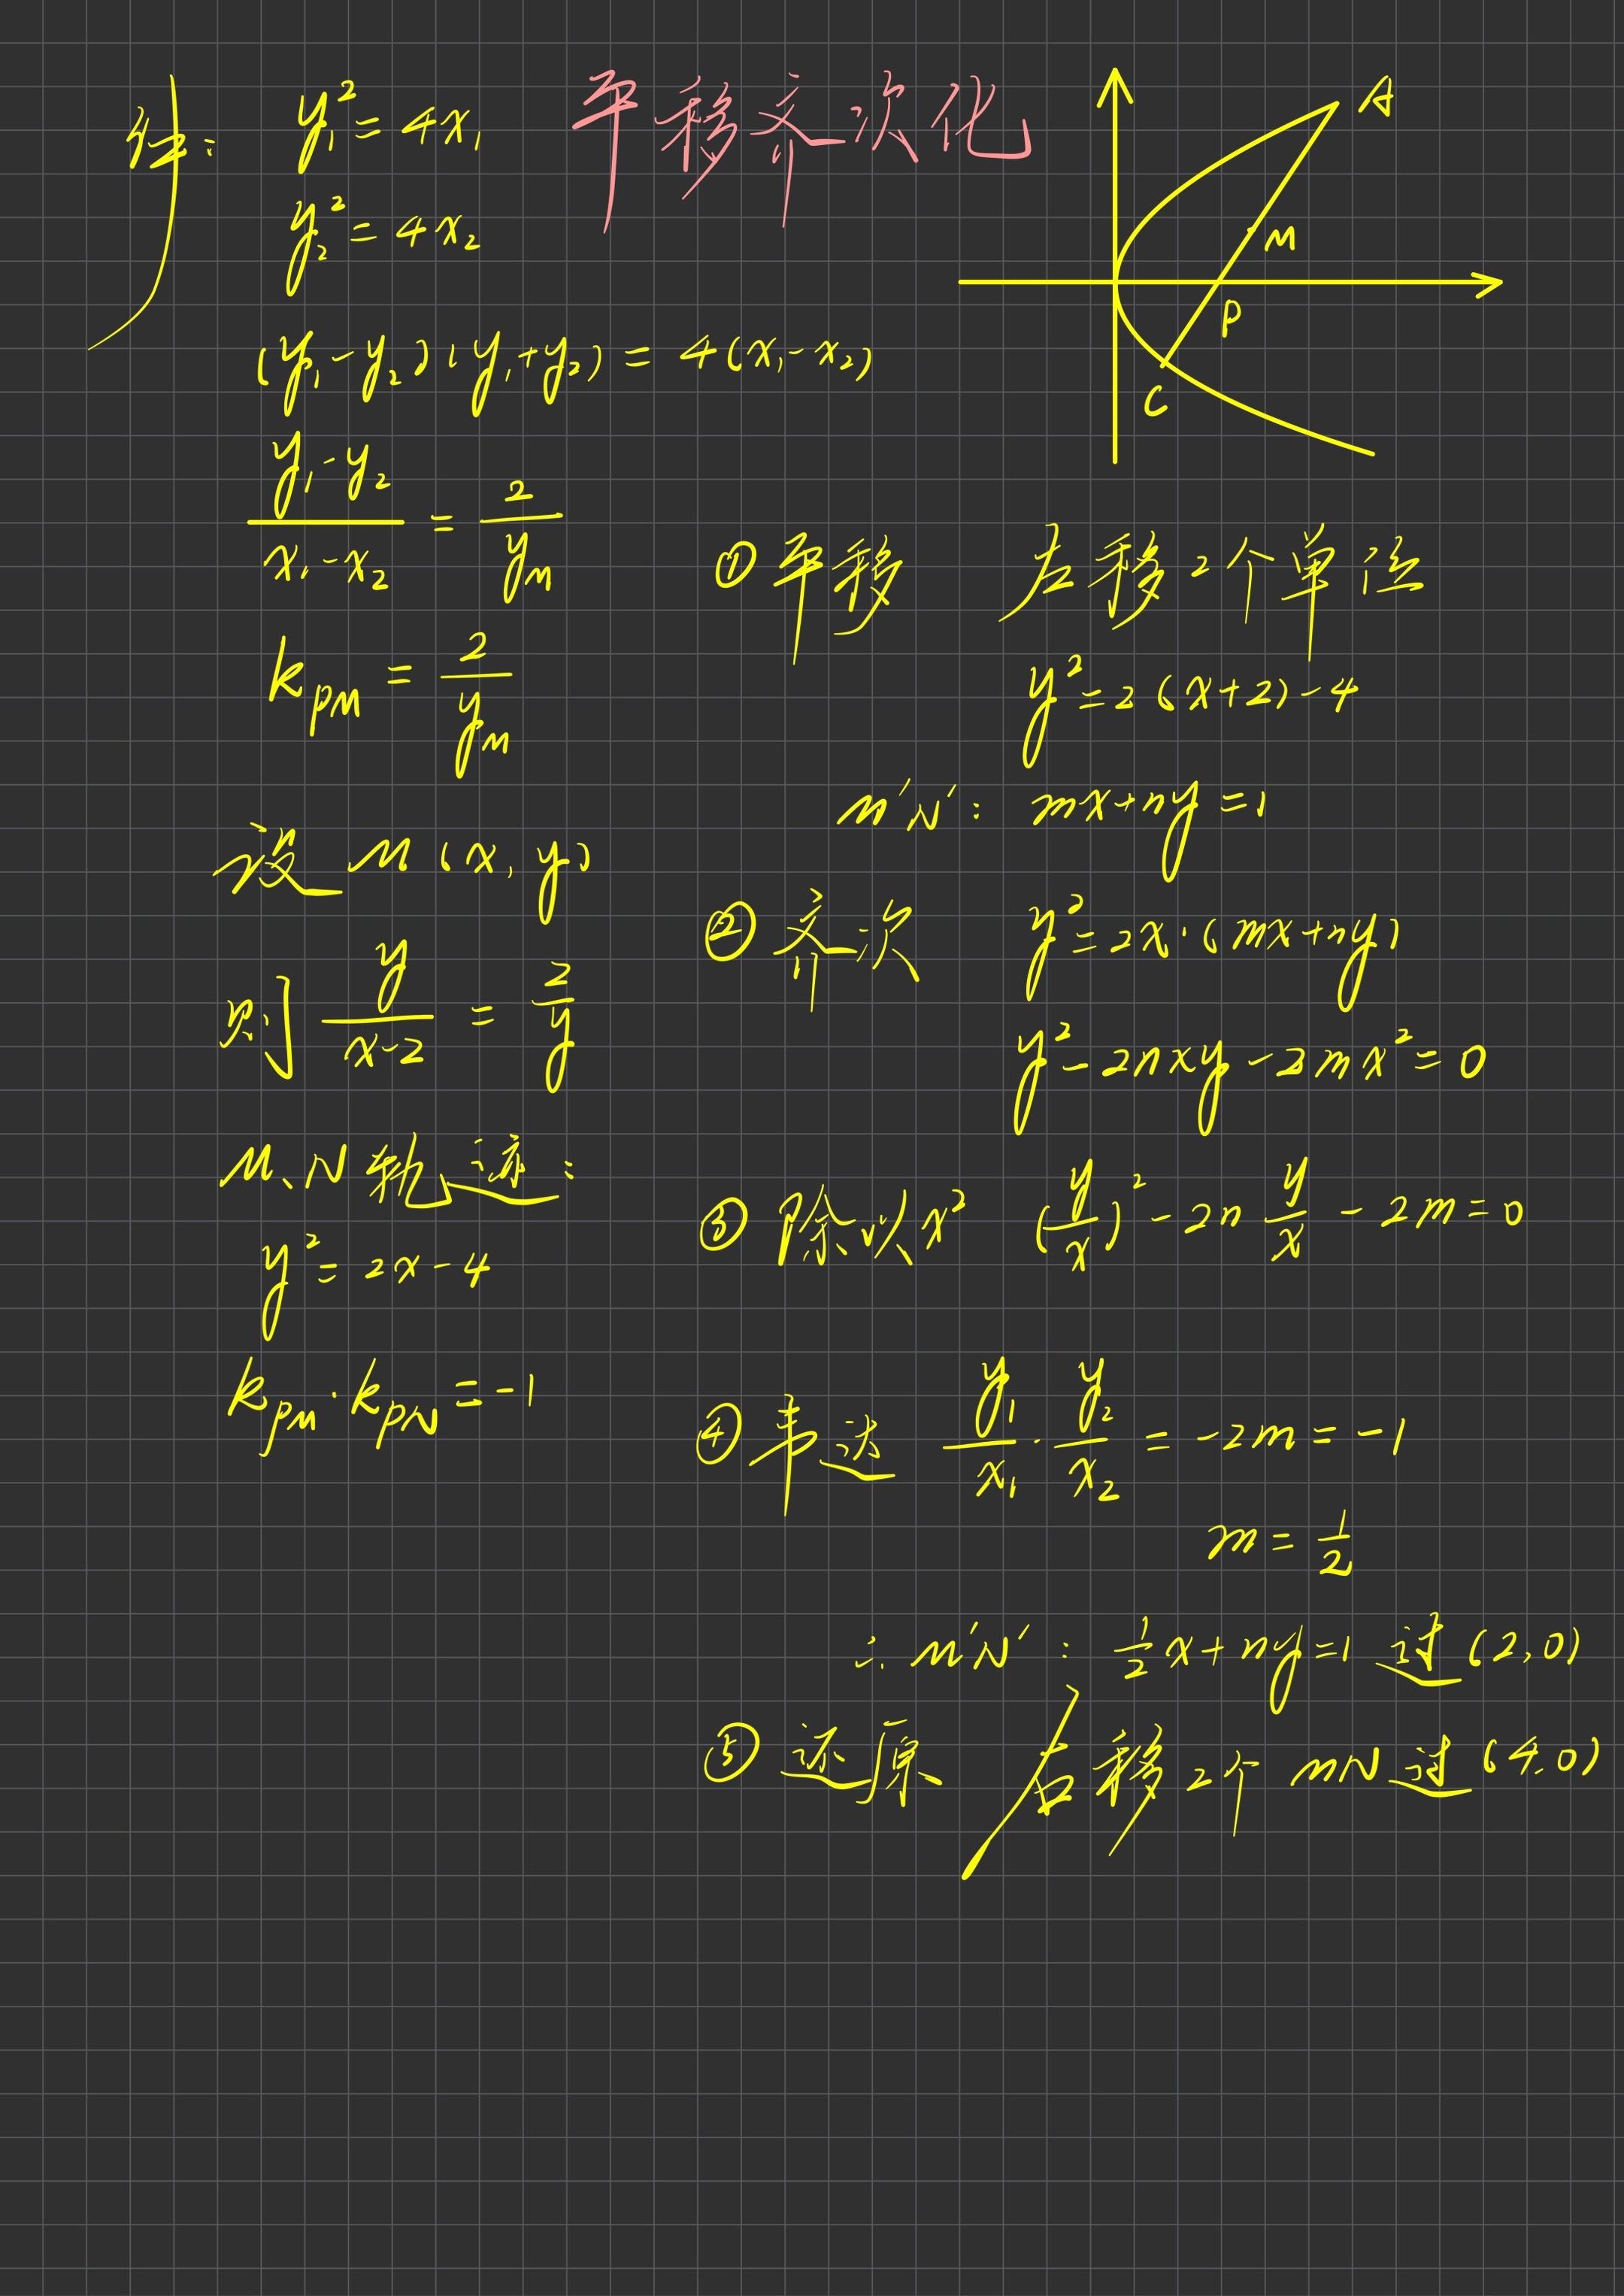 平移齐次化
A
M
P
C
y₁² = 4x₁
y₂² = 4x₂
(y₁-y₂)(y₁+y₂) = 4(x₁-x₂)
(y₁-y₂)/(x₁-x₂) = 2/y_M
k_PM = 2/y_M
设 M(x,y)
则 y/(x-2) = 2/y
M、N轨迹:
y² = 2x-4
k_PM·k_PN = -1
① 平移 左移2个单位
y² = 2(x+2)-4
M'N': mx+ny=1
② 齐次 y² = 2x·(mx+ny)
y²-2nxy-2mx²=0
③ 除以x² (y/x)²-2n y/x-2m=0
④ 韦达 y₁/x₁·y₂/x₂ = -2m = -1
m = 1/2
∴ M'N': 1/2x+ny=1 过(2,0)
⑤ 还原 右移2个 MN过(4,0)